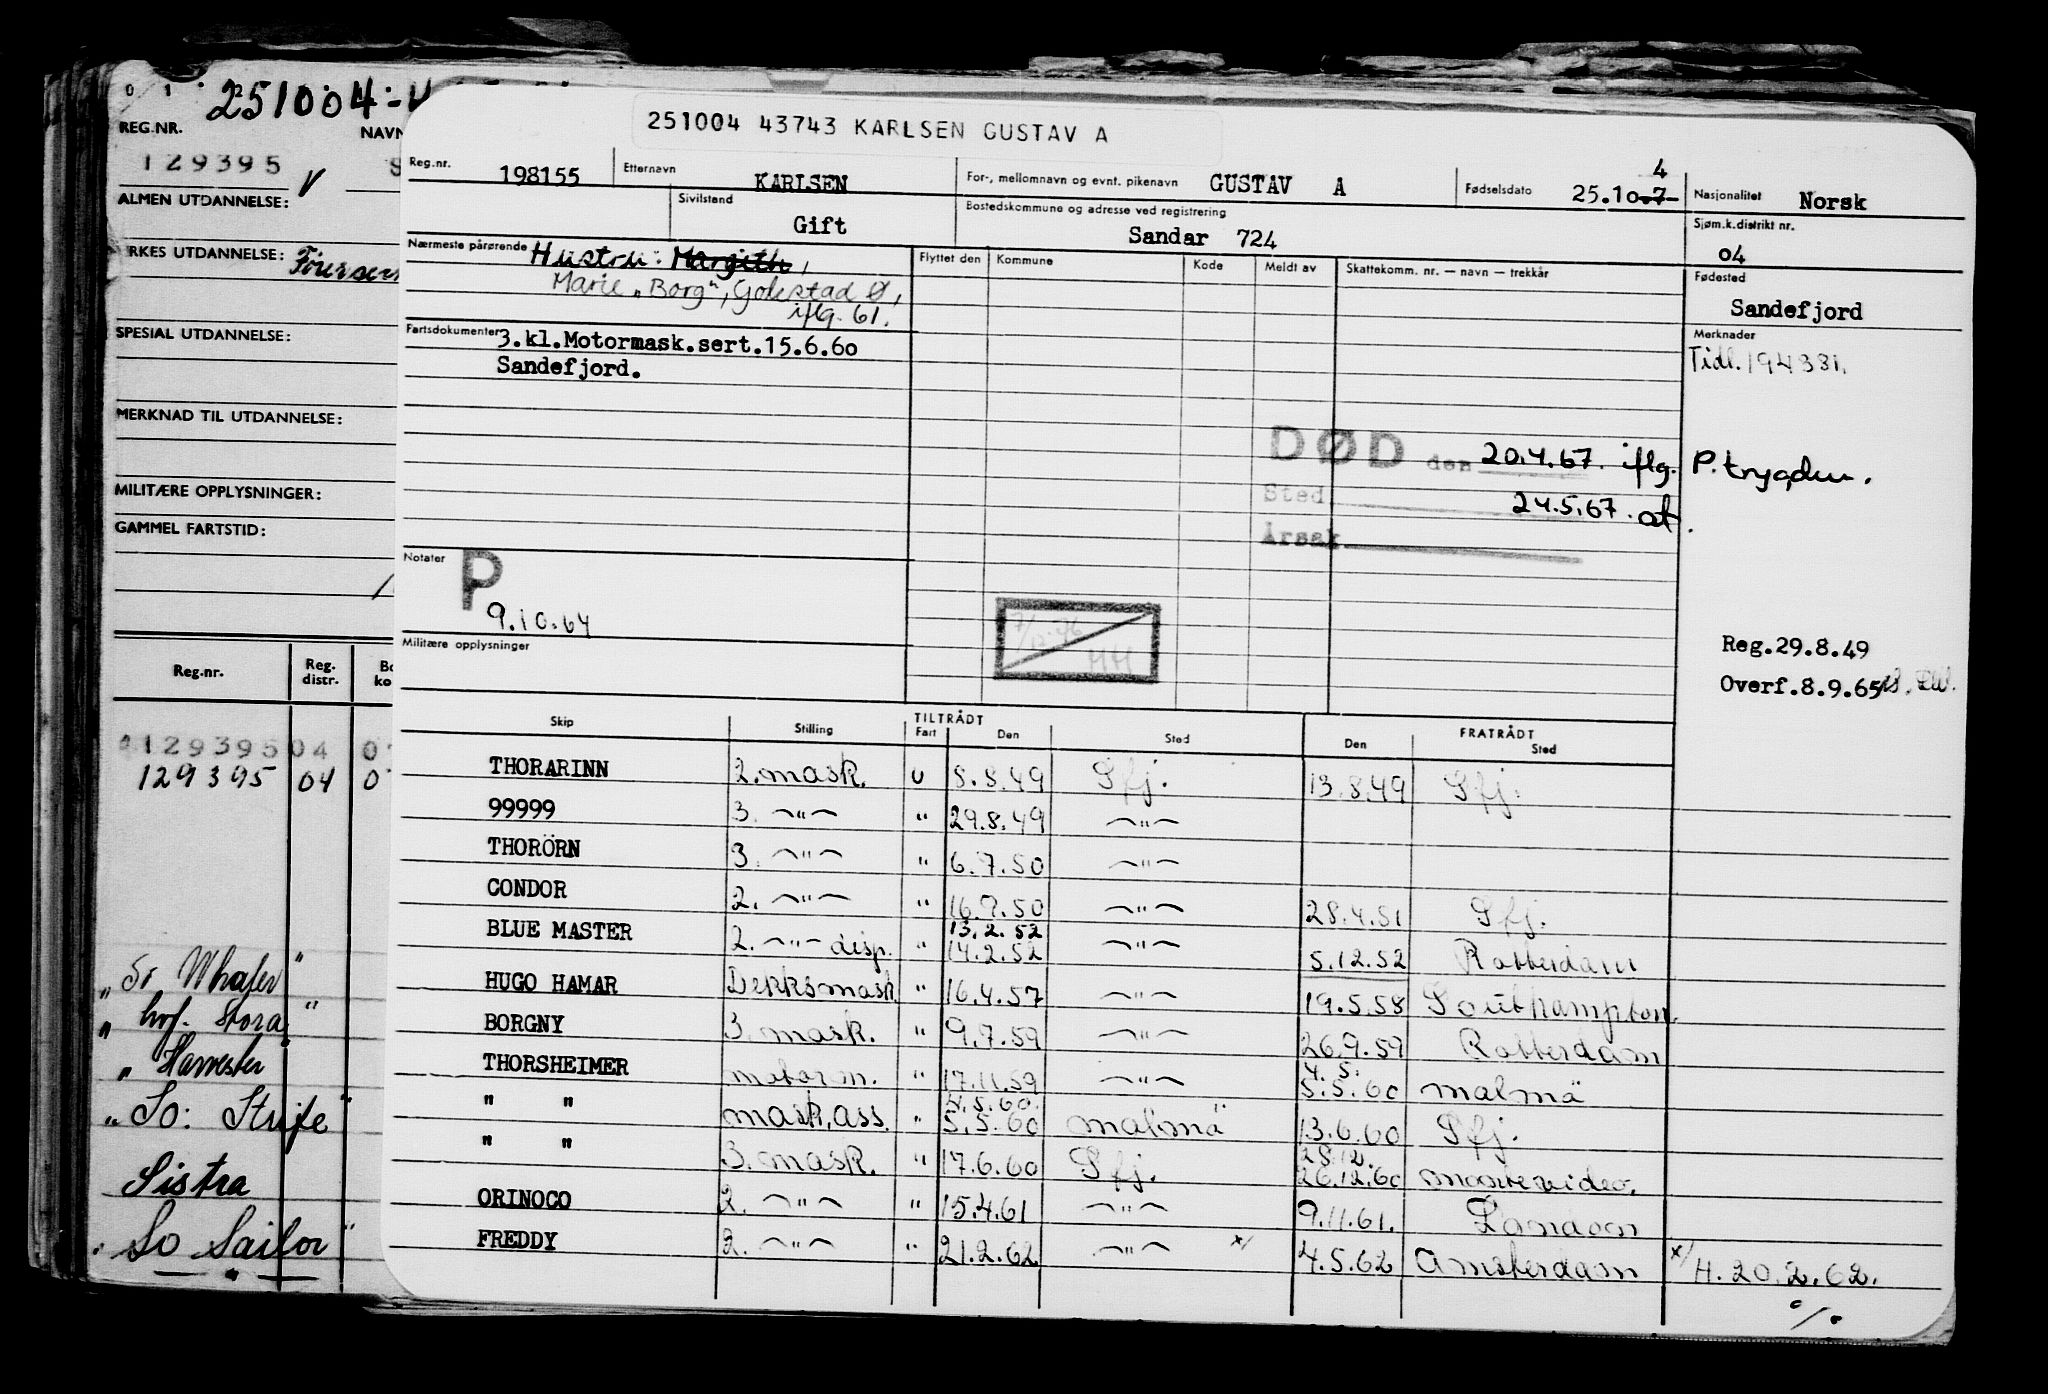 0 1
251004-
REG.NR.
NAVN
129395 V
ALMEN UTDANNELSE:
YRKES UTDANNELSE:
SPESIAL UTDANNELSE:
MERKNAD TIL UTDANNELSE:
MILITÆRE OPPLYSNINGER:
GAMMEL FARTSTID:
Reg.nr. Reg. distr. Bo ko
129395 04 0
129395 04 0
Sistra
" So Sailor "
251004 43743 KARLSEN GUSTAV A
Reg.nr. 198155 Etternavn KARLSEN For-, mellomnavn og evnt. pikenavn GUSTAV A Fødselsdato 25.10.7 4 Nasjonalitet Norsk
Sivilstand Gift Bostedskommune og adresse ved registrering Sandar 724 Sjøm.k.distrikt nr. 04
Nærmeste pårørende Hustru: Margith,
Marie "Borg", Gokstad Ø,
iflg. 61.
Flyttet den Kommune Kode Meldt av Skattekomm. nr. — navn — trekkår
Fødested
Sandefjord
Fartsdokumenter 3.kl.Motormask.sert.15.6.60
Sandefjord.
Merknader
Tidl. 194331.
DØD den 20.4.67. iflg. P. trygden.
Sted 24.5.67. at.
Årsak
Notater P
9.10.64
Militære opplysninger
7/12-76
HH
Reg.29.8.49
Overf.8.9.65
Skip Stilling TILTRÅDT Fart Den Sted FRATRÅDT Den Sted
THORARINN 2.mask. U 8.8.49 Sfj. 13.8.49 Sfj.
99999 3. —"— " 29.8.49 —"—
THORÖRN 3. —"— " 6.7.50 —"—
CONDOR 2. —"— " 16.7.50 —"— 28.4.51 Sfj.
13.2.52
BLUE MASTER 2. —"— disp. " 14.2.52 —"— 5.12.52 Rotterdam
HUGO HAMAR Dekksmask. " 16.4.57 —"— 19.5.58 Southampton.
BORGNY 3. mask. " 9.7.59 —"— 26.9.59 Rotterdam
4.5.
THORSHEIMER motorm. " 17.11.59 —"— 5.5.60 malmö
4.5.60.
" " mask.ass. " 5.5.60 malmö 13.6.60 Sfj.
28.12.
" " 3. mask. " 17.6.60 Sfj. 26.12.60 montevideo.
ORINOCO 2. —"— " 15.4.61 —"— 9.11.61. London
FREDDY 2. —"— " 21.2.62 —"— x/ 4.5.62 Amsterdam x/ H. 20.2.62.